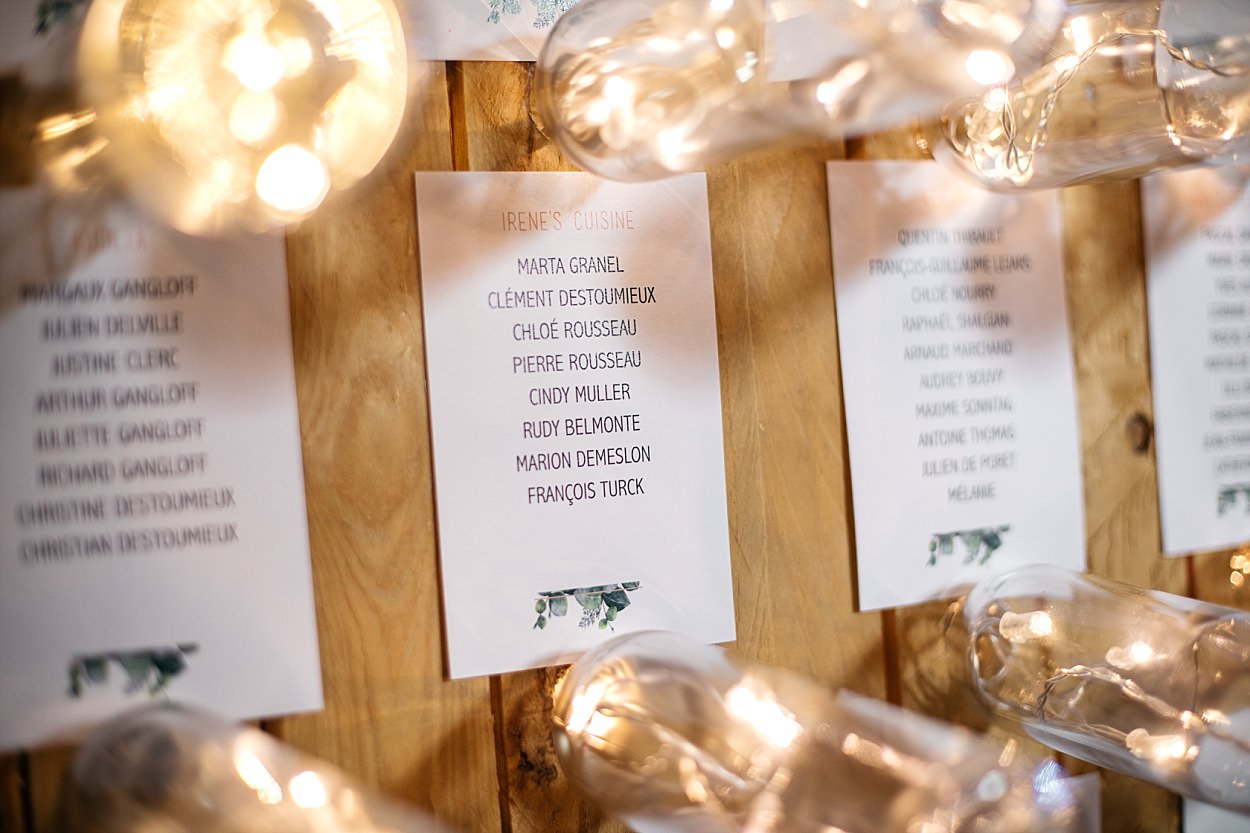 MARGAUX GANGLOFF
JULIEN DELVILLE
JUSTINE CLERC
ARTHUR GANGLOFF
JULIETTE GANGLOFF
RICHARD GANGLOFF
CHRISTINE DESTOUMIEUX
CHRISTIAN DESTOUMIEUX
IRENE'S CUISINE
MARTA GRANEL
CLÉMENT DESTOUMIEUX
CHLOÉ ROUSSEAU
PIERRE ROUSSEAU
CINDY MULLER
RUDY BELMONTE
MARION DEMESLON
FRANÇOIS TURCK
QUENTIN THIBAULT
FRANÇOIS-GUILLAUME
CHLOÉ NOURRY
RAPHAËL SHALGIAN
ARNAUD MARCHAND
AUDREY BOUVY
MAXIME SONNTAG
ANTOINE THOMAS
JULIEN DE PORET
MÉLANIE